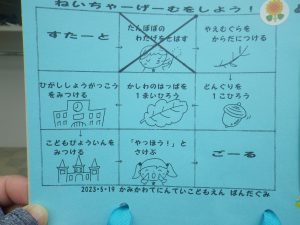 ねいちゃーげーむをしよう!
すたーと
たんぽぽの
わたげをとばす
やえむぐらを
からだにつける
ひがししょうがっこう
をみつける
かしわのはっぱを
1まいひろう
どんぐりを
1こひろう
こどもびょういんを
みつける
「やっほう!」と
さけぶ
ごーる
2023・5・19 かみかわてにんていこどもえん ぱんだぐみ